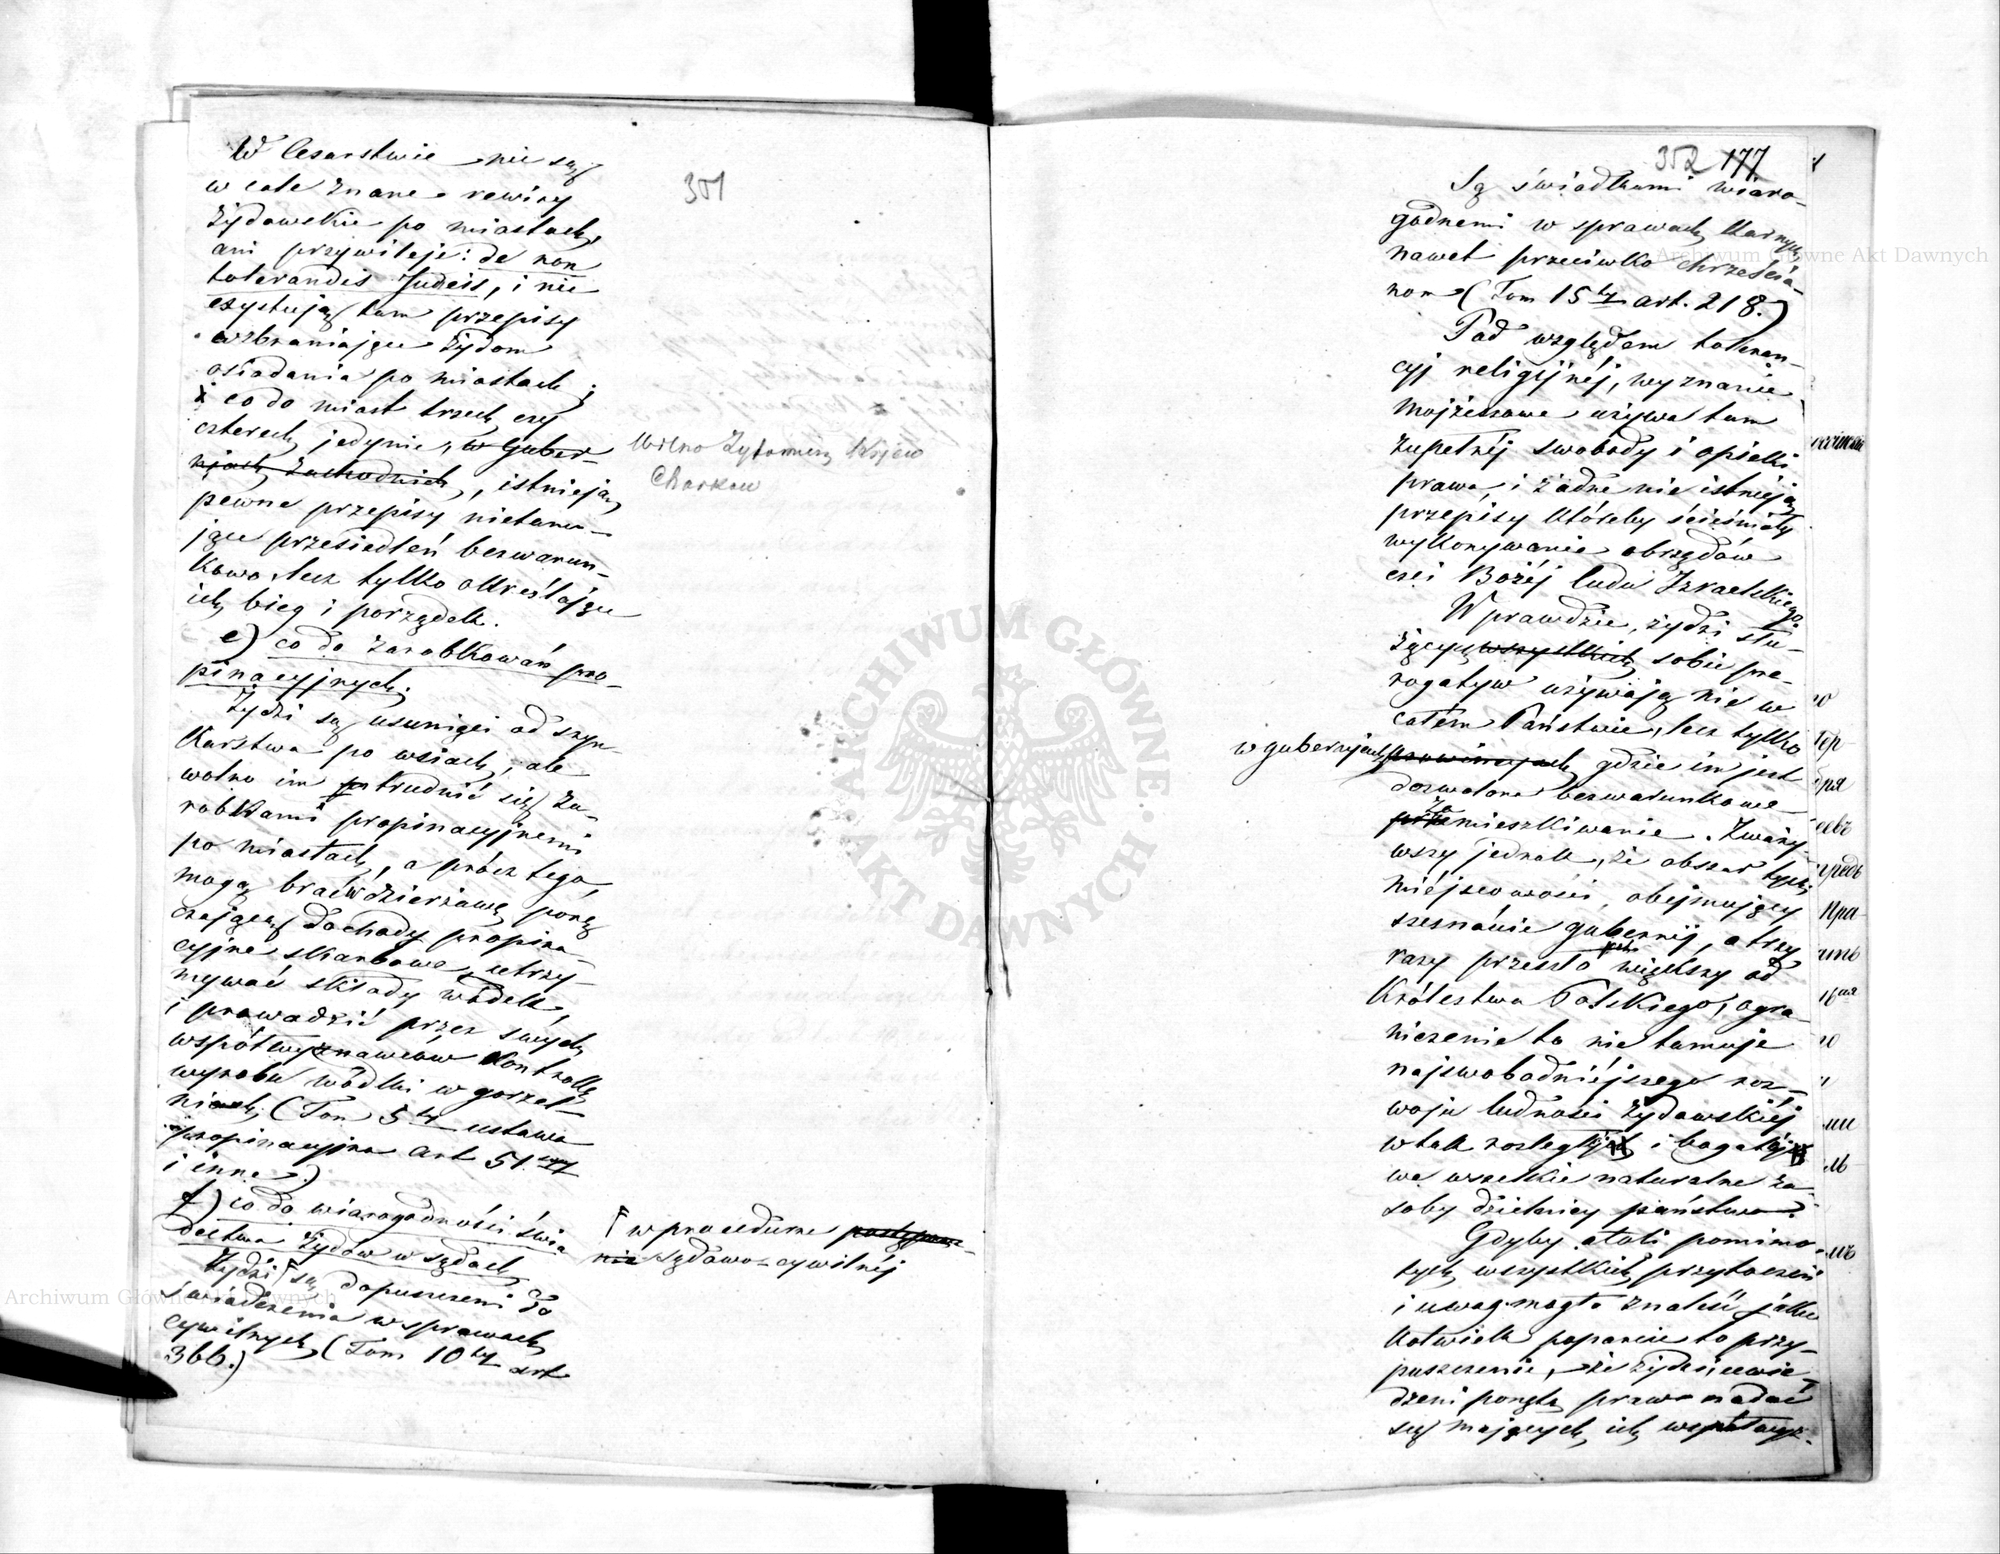 351
W Cesarstwie nie są
w cale znane rewiry
żydowskie po miastach,
ani przywileje: de non
tolerandis Judeis, i nie
exystują tam przepisy
wzbraniające żydom
osiadania po miastach;
i co do miast trzech czy
czterech jedynie, w Guber-
njach Zachodnich, istnieją
pewne przepisy nietamu-
jące przesiedleń bezwarun-
kowo, lecz tylko określające
ich bieg i porządek.
Wilno Żytomierz Kijew
Charkow
e) co do zarobkowań pro-
pinacyjnych.
Żydzi są usunięci od szyn-
karstwa po wsiach, ale
wolno im trudnić się za-
robkami propinacyjnemi
po miastach, a prócz tego,
mogą brać w dzierżawę porę
czającą dochody propina-
cyjne skarbowe, utrzy-
mywać składy wódek,
i prowadzić przez swych
współwyznawców kontrollę
wyrobu wódki w gorzel-
niach (Tom 5ty ustawa
propinacyjna art 51
i inne.)
f) co do wiarogodności świa
dectwa Żydów w sądach
Żydzi są dopuszczeni do
świadczenia w sprawach
cywilnych, (Tom 10ty art
366.)
w procedurze postępowa-
nia sądowo-cywilnéj
352 177
Są świadkami wiaro-
godnemi w sprawach karnych
nawet przeciwko chrześcia-
nom (Tom 15ty art. 218.)
Pod względem toleran-
cyj religijnéj, wyznanie
Mojżeszowe używa tam
zupełnéj swobody i opieki
prawa, i żadne nie istnieją
przepisy któreby ścieśniały
wykonywanie obrzędów
czci Bożéj ludu Izraelskiego
Wprawdzie, żydzi słu-
żących wszystkich sobie pre-
rogatyw używają nie w
całem Państwie, lecz tylko
w gubernijach prowincyach gdzie im jest
dozwolone bezwarunkowe
zamieszkiwanie. Zważy-
wszy jednak, że obszar tych
miéjscowości, obejmujący
szesnaście gubernij, a trzy
razy przeszło większy od
Królestwa Polskiego, ogra-
niczenie to nie tamuje
najswobodniéjszego roz-
woju ludności żydowskiéj
w tak rozległéj i bogatéj
we wszelkie naturalne za-
soby dzielnicy państwa.
Gdyby atoli pomimo
tych wszystkich przytoczeń
i uwag mogło znaleść jakie
kolwiek poparcie to przy-
puszczenie, że żydzi, uwie-
dzeni ponętą praw nadać
się mających ich współwyz-
Archiwum Główne Akt Dawnych
Archiwum Główne Akt Dawnych
ARCHIWUM GŁÓWNE AKT DAWNYCH